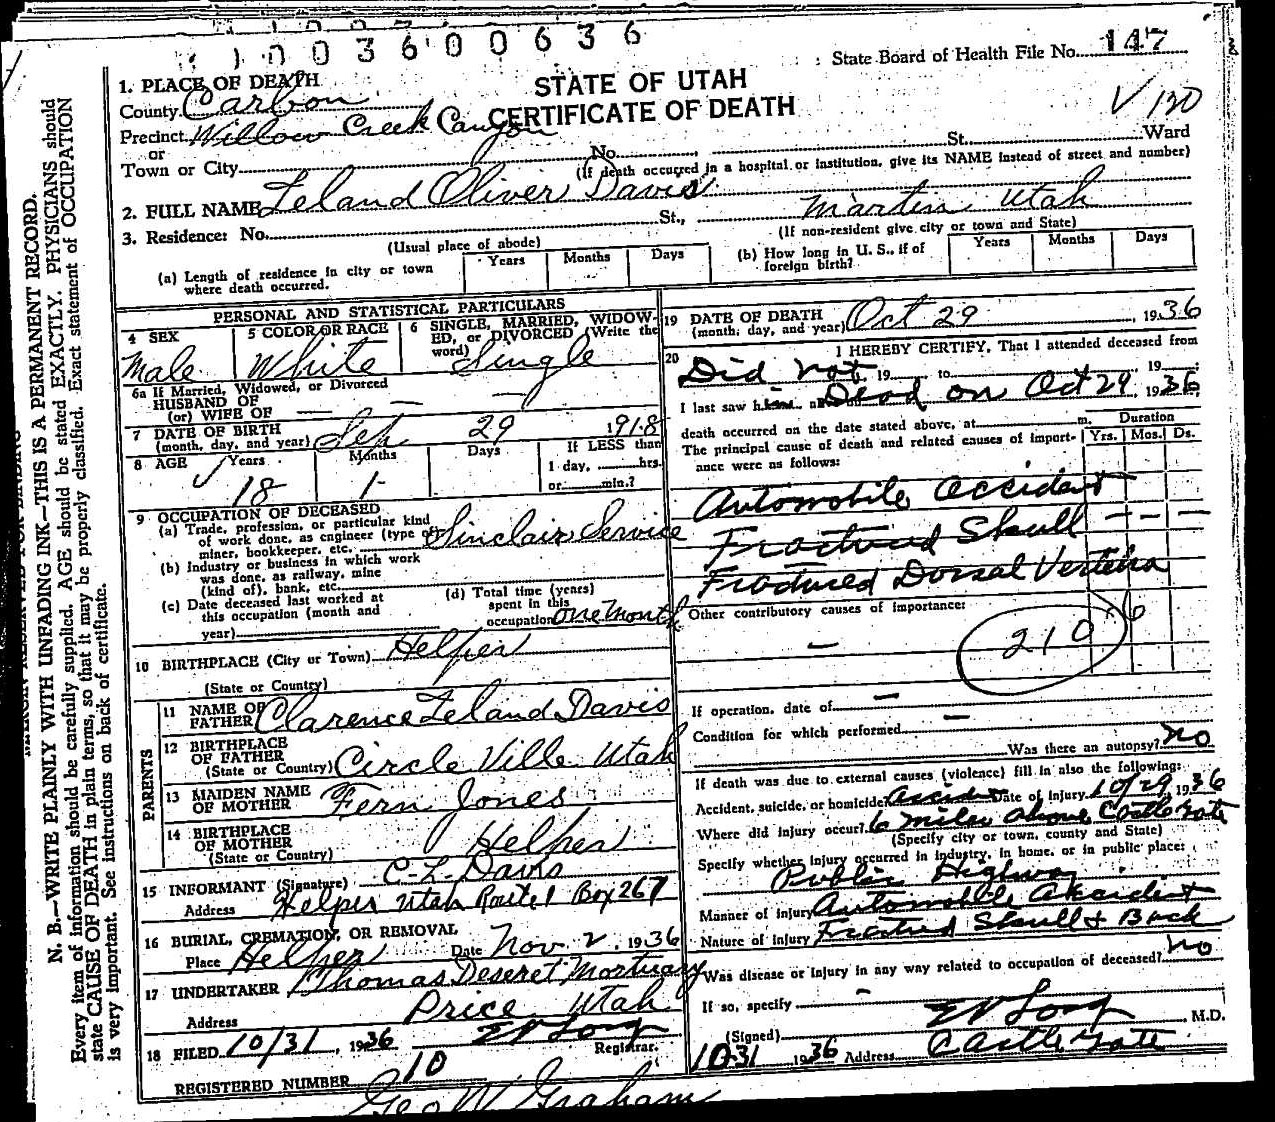 1003600636
State Board of Health File No. 147
STATE OF UTAH
CERTIFICATE OF DEATH
V 120
1. PLACE OF DEATH
County Carbon
Precinct Willow Creek Canyon
or
Town or City No. St. Ward
(If death occurred in a hospital or institution, give its NAME instead of street and number)
2. FULL NAME Leland Oliver Davis
3. Residence: No. St., Martin Utah
(Usual place of abode) (If non-resident give city or town and State)
(a) Length of residence in city or town where death occurred. Years Months Days
(b) How long in U. S., if of foreign birth? Years Months Days
PERSONAL AND STATISTICAL PARTICULARS
4 SEX Male
5 COLOR OR RACE White
6 SINGLE, MARRIED, WIDOWED, or DIVORCED (Write the word) Single
6a If Married, Widowed, or Divorced
HUSBAND OF
(or) WIFE OF
7 DATE OF BIRTH
(month, day, and year) Sep 29 1918
8 AGE Years 18 Months 1 Days If LESS than
1 day, hrs.
or min.?
9 OCCUPATION OF DECEASED
(a) Trade, profession, or particular kind
of work done, as engineer (type of
miner, bookkeeper, etc. Sinclair Service
(b) Industry or business in which work
was done, as railway, mine
(kind of), bank, etc.
(c) Date deceased last worked at
this occupation (month and
year)
(d) Total time (years)
spent in this
occupation one month
10 BIRTHPLACE (City or Town) Helper
(State or Country)
PARENTS
11 NAME OF
FATHER Clarence Leland Davis
12 BIRTHPLACE
OF FATHER
(State or Country) Circle Ville Utah
13 MAIDEN NAME
OF MOTHER Fern Jones
14 BIRTHPLACE
OF MOTHER
(State or Country) Helper
15 INFORMANT (Signature) C-L-Davis
Address Helper Utah Route 1 Box 267
16 BURIAL, CREMATION, OR REMOVAL
Place Helper Date Nov 2, 1936
17 UNDERTAKER Thomas Deseret Mortuary
Address Price Utah
18 FILED 10/31, 1936 E V Long
Registrar.
REGISTERED NUMBER 10
Geo W Graham
19 DATE OF DEATH
(month, day, and year) Oct 29, 1936
20 I HEREBY CERTIFY, That I attended deceased from
Did not, 19 to 19
I last saw him Dead on Oct 29, 1936
death occurred on the date stated above, at m.
The principal cause of death and related causes of importance were as follows:
Duration
Yrs. Mos. Ds.
Automobile Accident
Fractured Skull
Fractured Dorsal Vertebra
Other contributory causes of importance:
210
If operation, date of
Condition for which performed
Was there an autopsy? No
If death was due to external causes (violence) fill in also the following:
Accident, suicide, or homicide? Accident Date of injury 10/29, 1936
Where did injury occur? 6 miles above Castle Gate
(Specify city or town, county and State)
Specify whether injury occurred in industry, in home, or in public place:
Public Highway
Manner of Injury Automobile Accident
Nature of Injury Fractured Skull + Back
Was disease or injury in any way related to occupation of deceased? No
If so, specify
(Signed) E V Long, M.D.
10-31 1936 Address Castle Gate
N. B.—WRITE PLAINLY WITH UNFADING INK—THIS IS A PERMANENT RECORD.
Every item of information should be carefully supplied. AGE should be stated EXACTLY. PHYSICIANS should
state CAUSE OF DEATH in plain terms, so that it may be properly classified. Exact statement of OCCUPATION
is very important. See instructions on back of certificate.